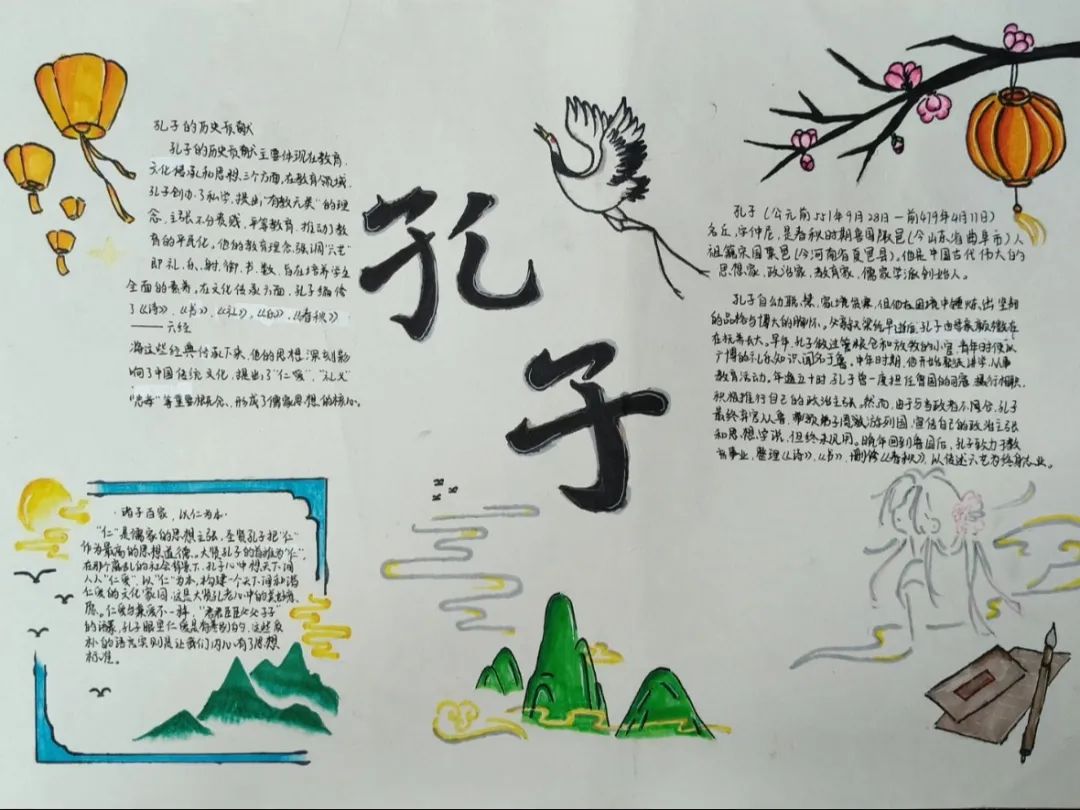 孔子的历史贡献
孔子的历史贡献主要体现在教育、
文化传承和思想三个方面,在教育领域,
孔子创办了私学,提出"有教无类"的理
念,主张不分贵贱,平等教育,推动了教
育的平民化,他的教育理念强调"六艺"
即礼、乐、射、御、书、数,旨在培养学生
全面的素养。在文化传承方面,孔子编修
了《诗》,《书》,《礼》,《乐》,《春秋》
——六经
将这些经典传承下来,他的思想深刻影
响了中国传统文化,提出了"仁爱",“礼义"
"忠孝"等重要概念,形成了儒家思想的核心。
孔
子
孔子(公元前551年9月28日—前479年4月11日)
名丘,字仲尼,是春秋时期鲁国陬邑(今山东省曲阜市)人
祖籍宋国栗邑(今河南省夏邑县),他是中国古代伟大的
思想家、政治家、教育家、儒家学派创始人。
孔子自幼聪慧,家境贫寒,但他在困境中锤炼出坚韧
的品格与博大的胸怀。父亲叔梁纥早逝后,孔子由母亲颜徵在
在抚养长大。早年,孔子做过管粮仓和放牧的小官,青年时便以
广博的礼乐知识闻名于鲁。中年时期,他开始聚徒讲学,从事
教育活动。年逾五十时,孔子曾一度担任鲁国的司寇,摄行相职,
积极推行自己的政治主张。然而,由于与当政者不同合,孔子
最终弃官入鲁,带领弟子周游列国,宣传自己的政治主张
和思想学说,但终未见用。晚年回到鲁国后,孔子致力于教
育事业,整理《诗》,《书》,删修《春秋》,以传述六艺为终身志业。
·诸子百家,以仁为本·
"仁"是儒家的思想主张,圣贤孔子把"仁"
作为最高的思想道德。大贤孔子的首推为"仁",
在那个混乱的社会背景下,孔子心中想天下间
人人"仁爱",以"仁"为本,构建一个天下间和谐
仁爱的文化家园,这是大贤孔老心中的美好期
愿。仁爱与兼爱不一样,"君君臣臣父父子子"
的语录,孔子眼里仁爱是有差别的,这些质
朴的语言实则是让我们内心有了思想
标准。